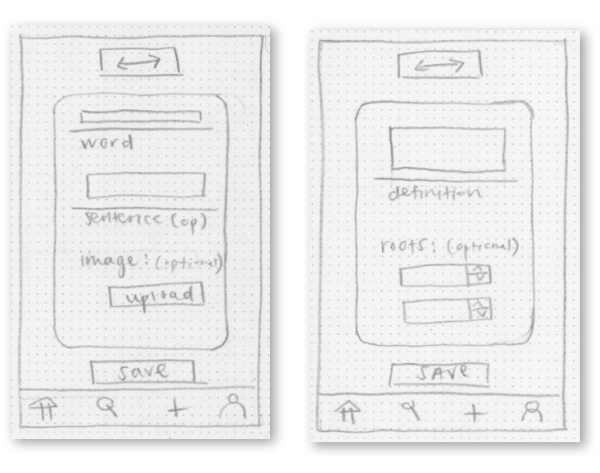 word
sentence (op)
image: (optional)
upload
save
definition
roots: (optional)
SAVE